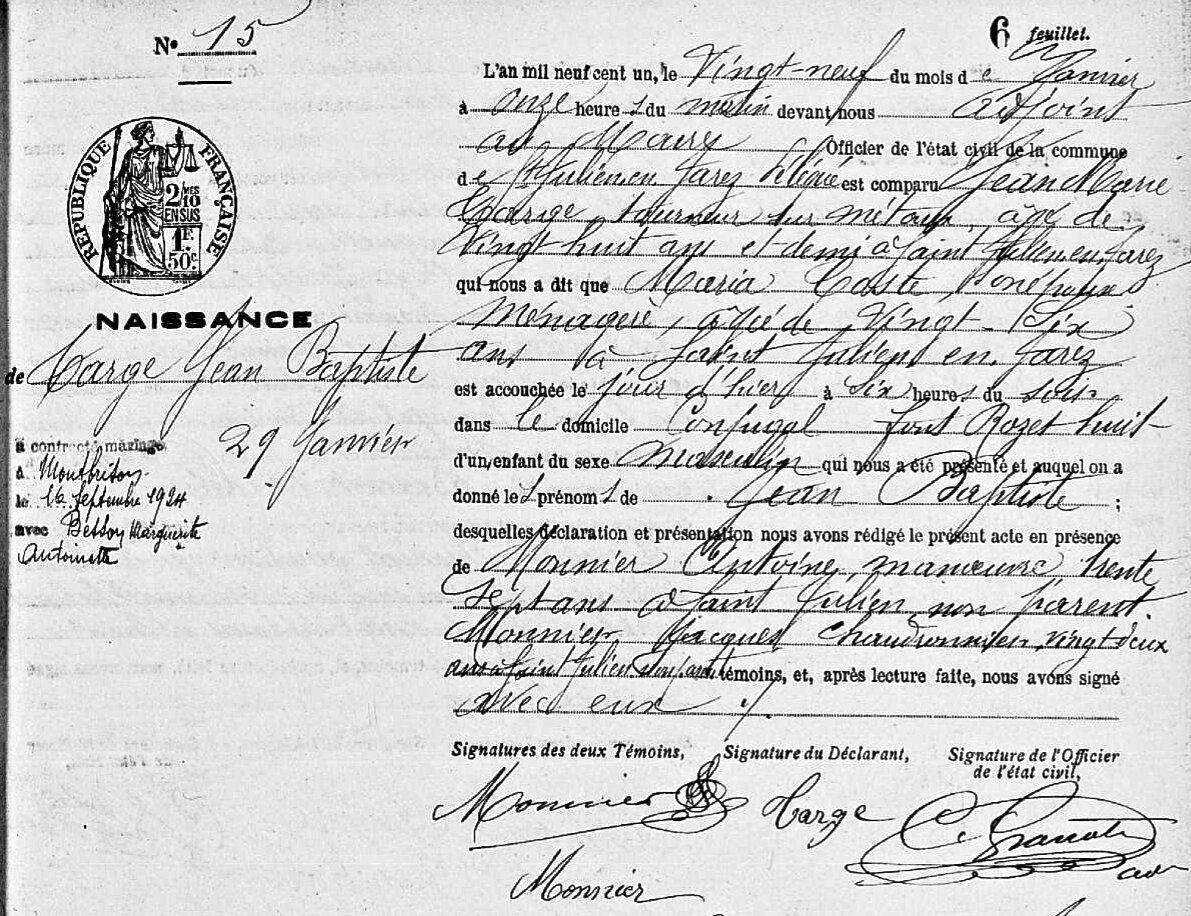 N° 15
6 feuillet.
RÉPUBLIQUE FRANÇAISE
2/10 MES
EN SUS
1F
50c.
NAISSANCE
de Targe Jean Baptiste
29 Janvier
a contracté mariage
à Montbrison
le 16 septembre 1924
avec Besson Marguerite
Antoinette
L'an mil neuf cent un, le Vingt-neuf du mois de Janvier
à onze heures du matin devant nous adjoint
au Maire Officier de l'état civil de la commune
de St Julien en Jarez délégué est comparu Jean Marie
Targe, tourneur sur métaux, âgé de
Vingt huit ans et demi à Saint Julien en Jarez
qui nous a dit que Maria Coste, son épouse
Ménagère, âgée de Vingt-Six
ans à Saint Julien en Jarez
est accouchée le jour d'hier à six heures du soir
dans le domicile Conjugal font Rozet huit
d'un enfant du sexe masculin qui nous a été présenté et auquel on a
donné les prénoms de Jean Baptiste ;
desquelles déclaration et présentation nous avons rédigé le présent acte en présence
de Monnier Antoine, manœuvre, trente
sept ans à Saint Julien, non parent.
Monnier Jacques chaudronnier, vingt deux
ans à Saint Julien non parent témoins, et, après lecture faite, nous avons signé
avec eux ./.
Signatures des deux Témoins, Signature du Déclarant, Signature de l'Officier
de l'état civil,
Monnier Targe
Monnier